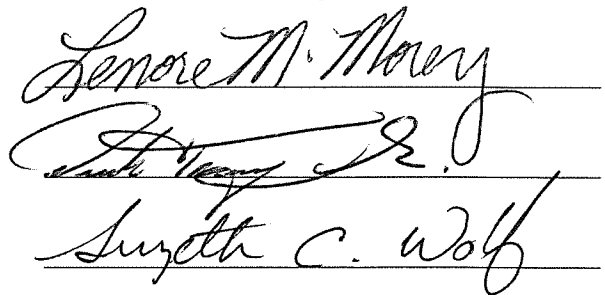 Lenore M. Morey
Jr.
Suzette C. Wolf